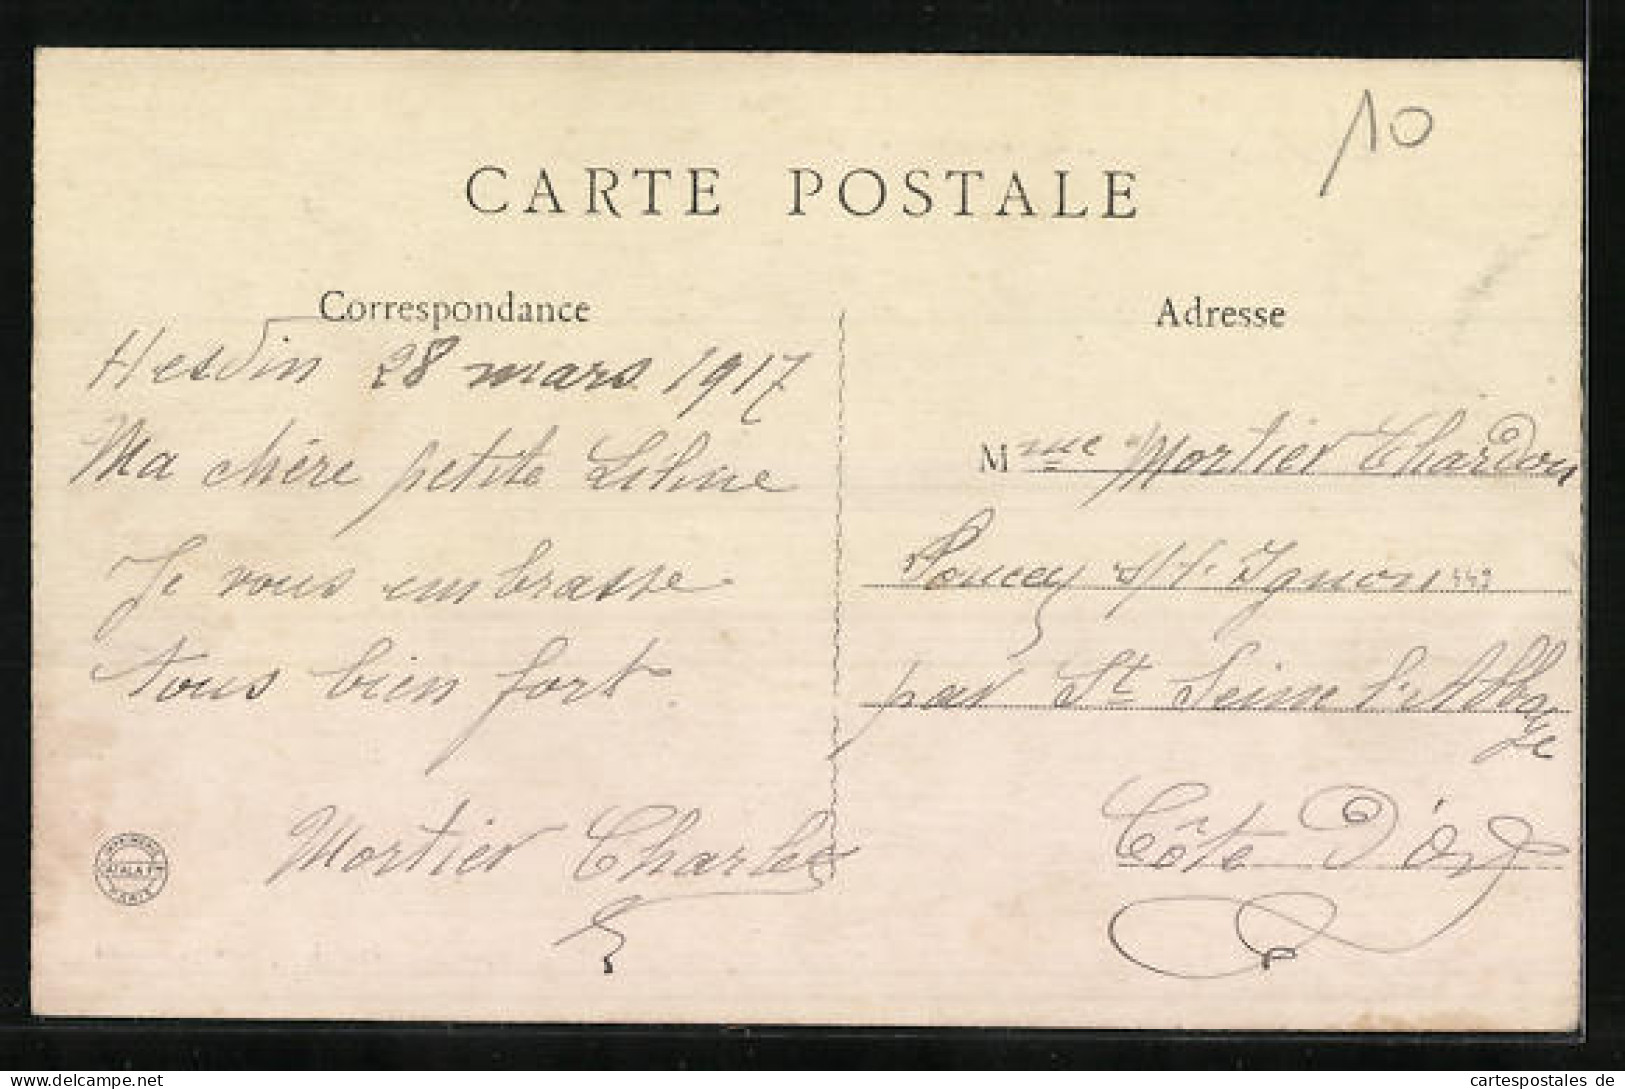 10
CARTE POSTALE
Correspondance
Hesdin 28 mars 1917
Ma chère petite
Je vous embrasse
tous bien fort.
Mortier Charles
Adresse
Mme Mortier Chardon
Poncey s/s. Ignon 449
par St Seine l'Abbaye
Côte d'or
PARIS
cartespostales de